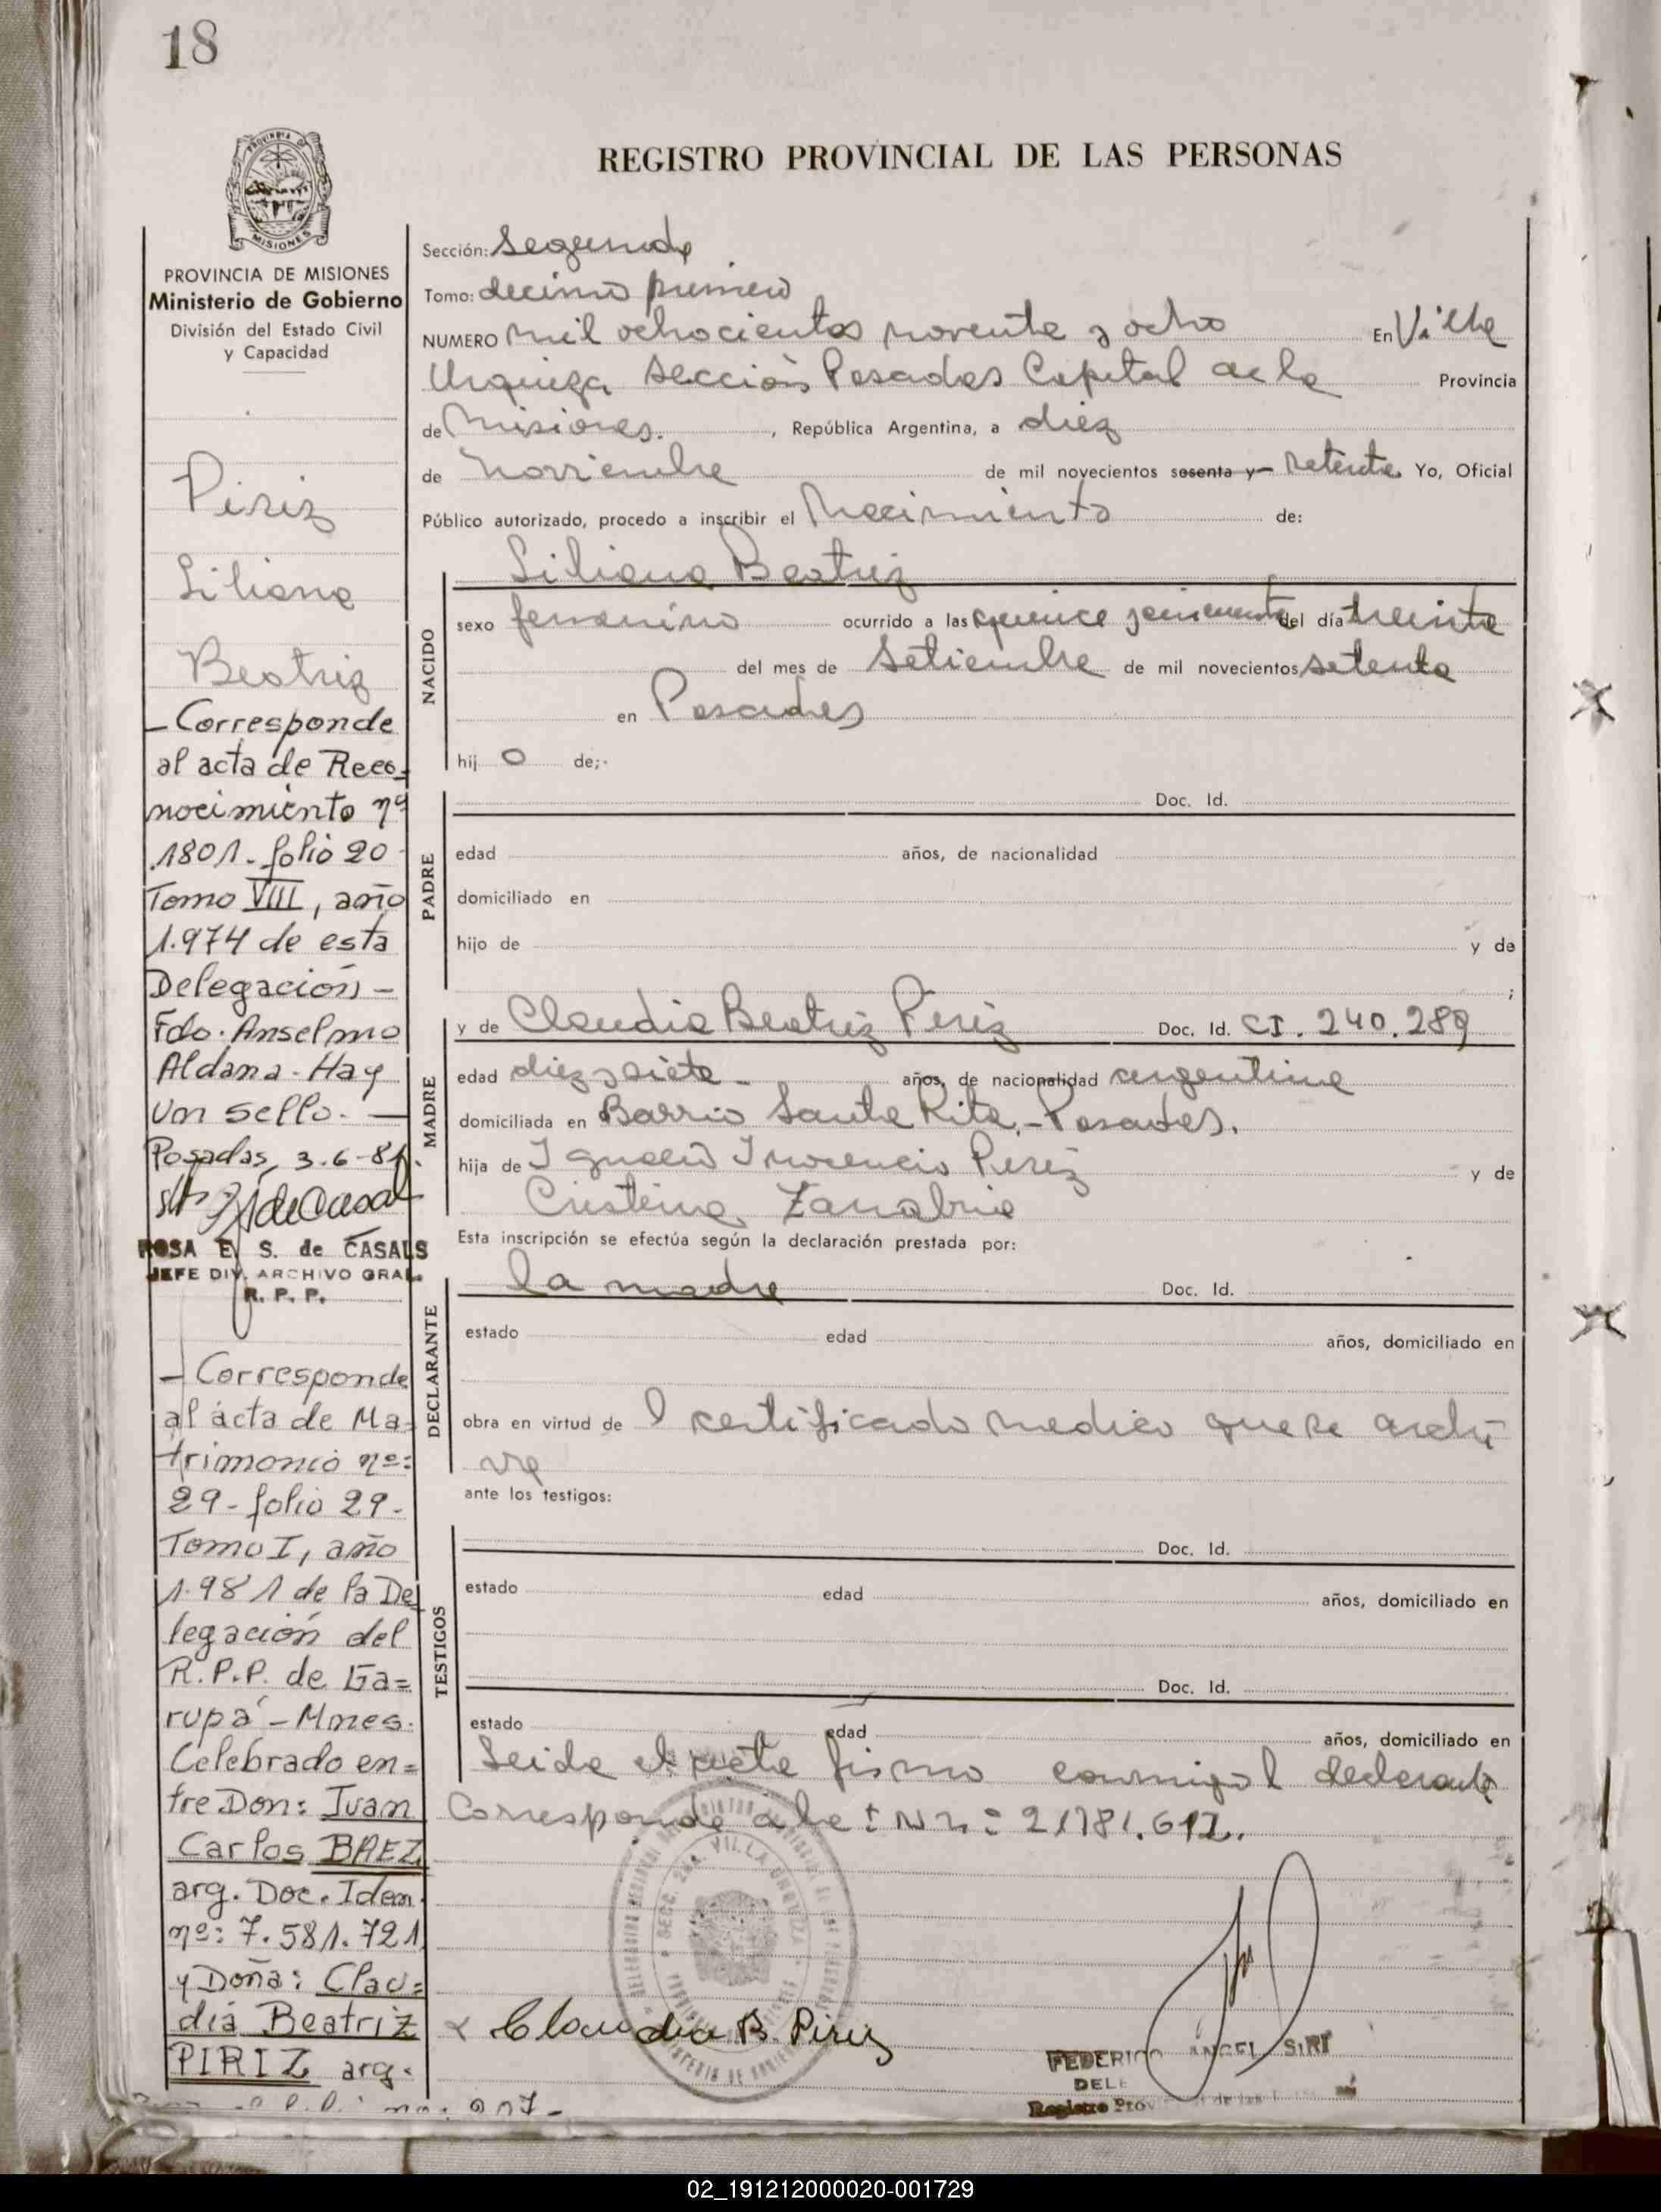 18
PROVINCIA DE
MISIONES
PROVINCIA DE MISIONES
Ministerio de Gobierno
División del Estado Civil
y Capacidad
Piriz
Liliana
Beatriz
- Corresponde
al acta de Reco=
nocimiento nº
1801- folio 20
Tomo VIII, año
1.974 de esta
Delegación -
Fdo. Anselmo
Aldana - Hay
un sello. -
Posadas, 3-6-81.
ROSA E. S. de CASALS
JEFE DIV. ARCHIVO GRAL.
R. P. P.
- Corresponde
al acta de Ma=
trimonio nº:
29- folio 29-
Tomo I, año
1.981 de la De
legación del
R.P.P. de Ga=
rupá - Mnes.
Celebrado en=
tre Don: Juan
Carlos BAEZ
arg. Doc. Iden.
nº: 7.581.721
y Doña: Clau=
dia Beatriz
PIRIZ arg.
REGISTRO PROVINCIAL DE LAS PERSONAS
Sección: Segunda
Tomo: decimo primero
NUMERO mil ochocientos noventa y ocho En Villa
Urquiza Sección Posadas Capital de la Provincia
de Misiones. , República Argentina, a diez
de noviembre de mil novecientos sesenta y setenta Yo, Oficial
Público autorizado, procedo a inscribir el Nacimiento de:
Liliana Beatriz
NACIDO
sexo femenino ocurrido a las quince y del día treinta
del mes de Setiembre de mil novecientos setenta
en Posadas
hij o de;-
PADRE
Doc. Id.
edad años, de nacionalidad
domiciliado en
hijo de y de
;
MADRE
y de Claudia Beatriz Piriz Doc. Id. CI. 240.289
edad diez y siete - años, de nacionalidad argentina
domiciliada en Barrio Santa Rita.- Posadas.
hija de Ignacio Inocencio Piriz y de
Cristina Zanabria
Esta inscripción se efectúa según la declaración prestada por:
DECLARANTE
la madre Doc. Id.
estado edad años, domiciliado en
obra en virtud de l certificado medico que se archi
va
ante los testigos:
TESTIGOS
Doc. Id.
estado edad años, domiciliado en
Doc. Id.
estado edad años, domiciliado en
Leida el acta firmo conmigo l declarante
Corresponde a la : 21781.617.
SECC. 2da. VILLA URQUIZA
Claudia B. Piriz
FEDERICO ANGEL SIRI
DELE
Registro Prov
02_191212000020-001729